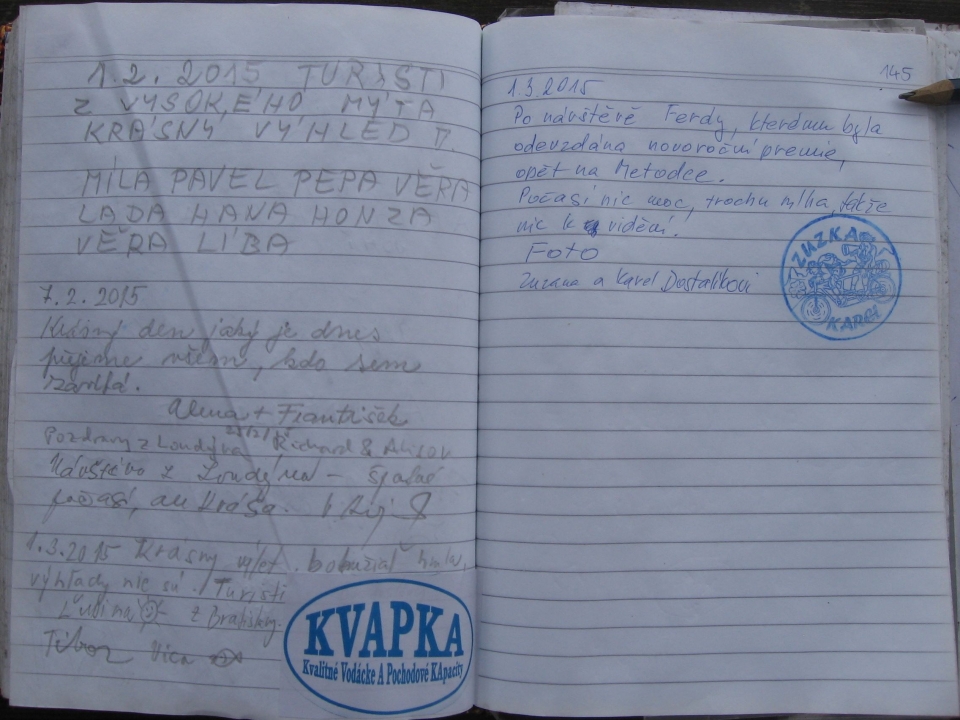 1.2.2015 TURISTI
Z VYSOKÉHO MÝTA
KRÁSNÝ VÝHLED
MÍLA PAVEL PEPA VĚRA
LADA HANA HONZA
VĚRA LÍBA
7.2.2015
Krásný den jaký je dnes
přejeme všem, kdo sem
zavítá.
Alena + František
Pozdravy z Londýna Richard &
Návštěva z Londýna - špatné
počasí, ale krása.
1.3.2015 Krásny výlet. bohužiaľ hmla,
výhľady nie sú. Turisti
Ľubina z Bratislavy.
Tibor Vica
KVAPKA
Kvalitné Vodácke A Pochodové KApacity
145
1.3.2015
Po návštěvě Ferdy, kterému byla
odevzdána novoroční premie,
opět na Metodce.
Počasí nic moc, trochu mlha, takže
nic k vidění.
Foto
Zuzana a Karel Dostalikovi
ZUZKA
KAREL